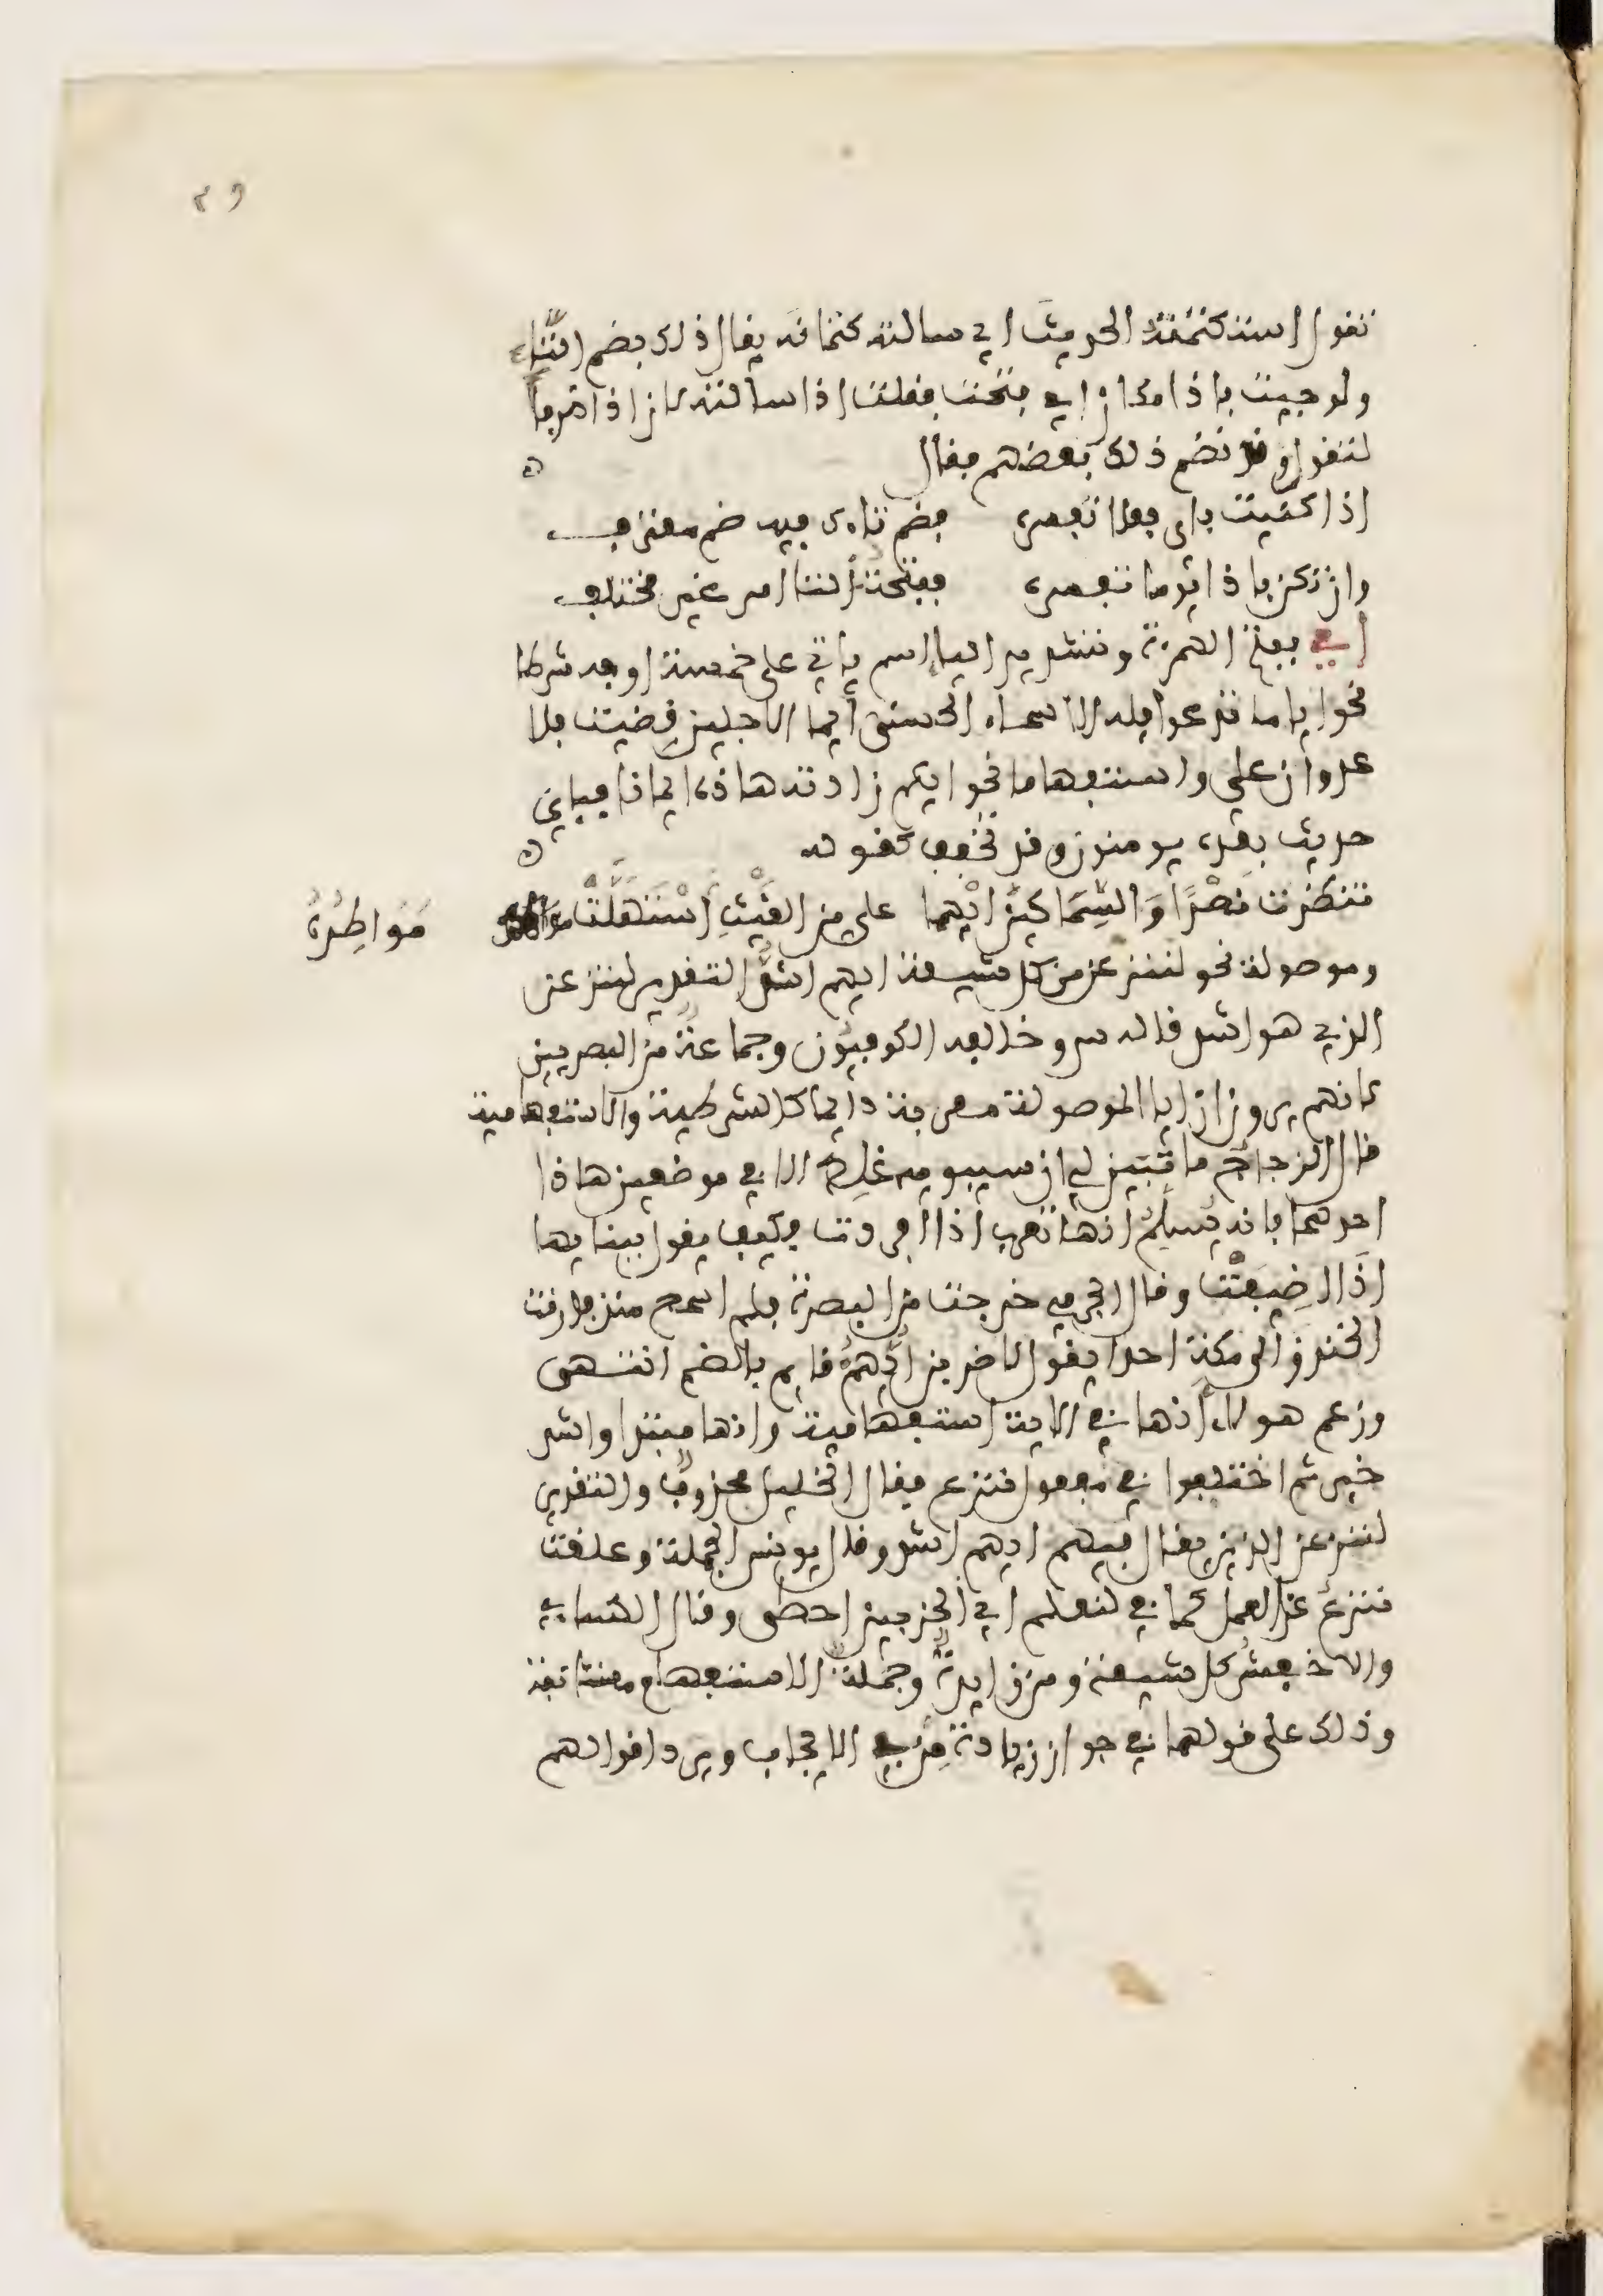 ٢٩
تقول استكتمته الحديث اي سالته كتمانه يقال ذلك بضم التاء
ولو جيت باذا مكان اي فتحت فقلت اذا سالته لان اذا ظرف
لتقول وقد نظم ذلك بعضهم فقال
اذا كنيت باي فعلا تفسره فضم تاءك فيه ضم معترف
وان تكن باذا يوما تفسره ففتحة التا امر غير مختلف
اي بفتح الهمزة وتشديد اليا اسم ياتي على خمسة اوجه شرطا
نحو ايا ما تدعوا فله الاسماء الحسنى أيما الاجلين قضيت فلا
عدوان علي واستفهاما نحو ايكم زادته هاذه ايمانا فباي
حديث بعده يومنون وقد تخفف كقوله
تنظرت نصْرًا وَالسِّمَاكَيْنِ ايْهما علي من الغَيْثِ اسْتَهَلَّتْ مَوَاطِرُهُ
وموصولة نحو لننزعن من كل شيعة ايهم اشدُّ التقدير لننزعن
الذي هو اشد قاله س وخالفه الكوفيون وجماعةٌ من البصريين
لانهم يرون ان ايا الموصولة معربة دايما كالشرطية والاستفهامية
قال الزجاج ما تبين لي ان سيبويه غلِط الا في موضعين هاذا
احدهما فانه يُسلِّمُ انها تعرب اذا افردت فكيف يقول ببنايها
اذا اضيفَتْ وقال الجرمي خرجت من البصرة فلم اسمع منذ فارقت
الخندق الى مكة احدا يقول لاضربن أيُّهمُ قايم بالضم انتهى
وزعم هولاء أنها في الاية استفهامية وانها مبتدا واشد
خبر ثم اختلفوا في مفعول ننزع فقال الخليل محذوفٌ والتقدير
لننزعن الذين يقال فيهم ايهم اشد وقال يونس الجملة وعلقت
ننزعُ عن العمل كما في لنعلم اي الحزبين احصى وقال الكساءي
والاخفش كل شيعة ومن زايدةٌ وجملةُ الاستفهام مستانفة
وذلك على قولهما في جواز زيادة مِن في الايجاب ويرد اقوالهم